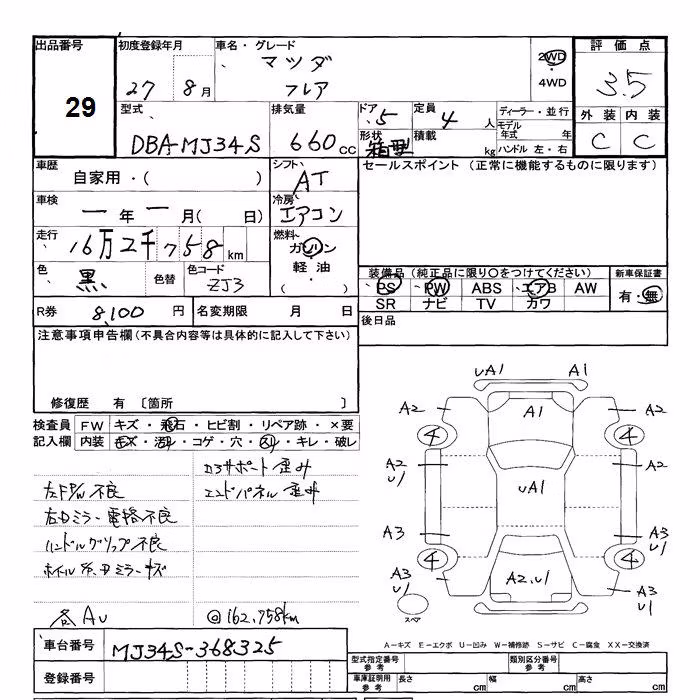 出品番号 29
初度登録年月 27 8月
車名・グレード マツダ フレア
2WD ・ 4WD
評価点 3.5
外装 内装
C C
型式 DBA-MJ34S
排気量 660cc
ドア 5
定員 4人
形状 箱型
積載 kg
ディーラー・並行
モデル年式 年
ハンドル 左・右
車歴 自家用・( )
シフト AT
セールスポイント (正常に機能するものに限ります)
車検 ー年ー月( 日)
冷房 エアコン
走行 16万2千758km
燃料 ガソリン 軽油・ ( )
色 黒 色替 色コード ZJ3
装備品 (純正品に限り○をつけてください) 新車保証書
PS PW ABS エアB AW 有・無
SR ナビ TV カワ
R券 8,100円 名変期限 月 日
後日品
注意事項申告欄 (不具合内容等は具体的に記入して下さい)
修復歴 有 〔箇所 〕
検査員記入欄
FW キズ・飛石・ヒビ割・リペア跡・×要
内装 キズ・汚れ・コゲ・穴・スレ・キレ・破レ
コアサポート歪み
エンドパネル歪み
左F P/W不良
右Dミラー電格不良
ハンドルグリップ不良
ホイル キズ、Dミラーキズ
各AU
@162.758km
uA1 A1
A2 A1 A2
4 4
A2 u1 uA1 A2
A3 A3 u1
4 4
A3 u1 A2.u1 A3 u1
スペア
A-キズ E-エクボ U-凹み W-補修跡 S-サビ C-腐食 XX-交換済
車台番号 MJ34S-368325
登録番号
型式指定番号 参考 類別区分番号 参考
車庫証明用 参考 長さ cm 幅 cm 高さ cm